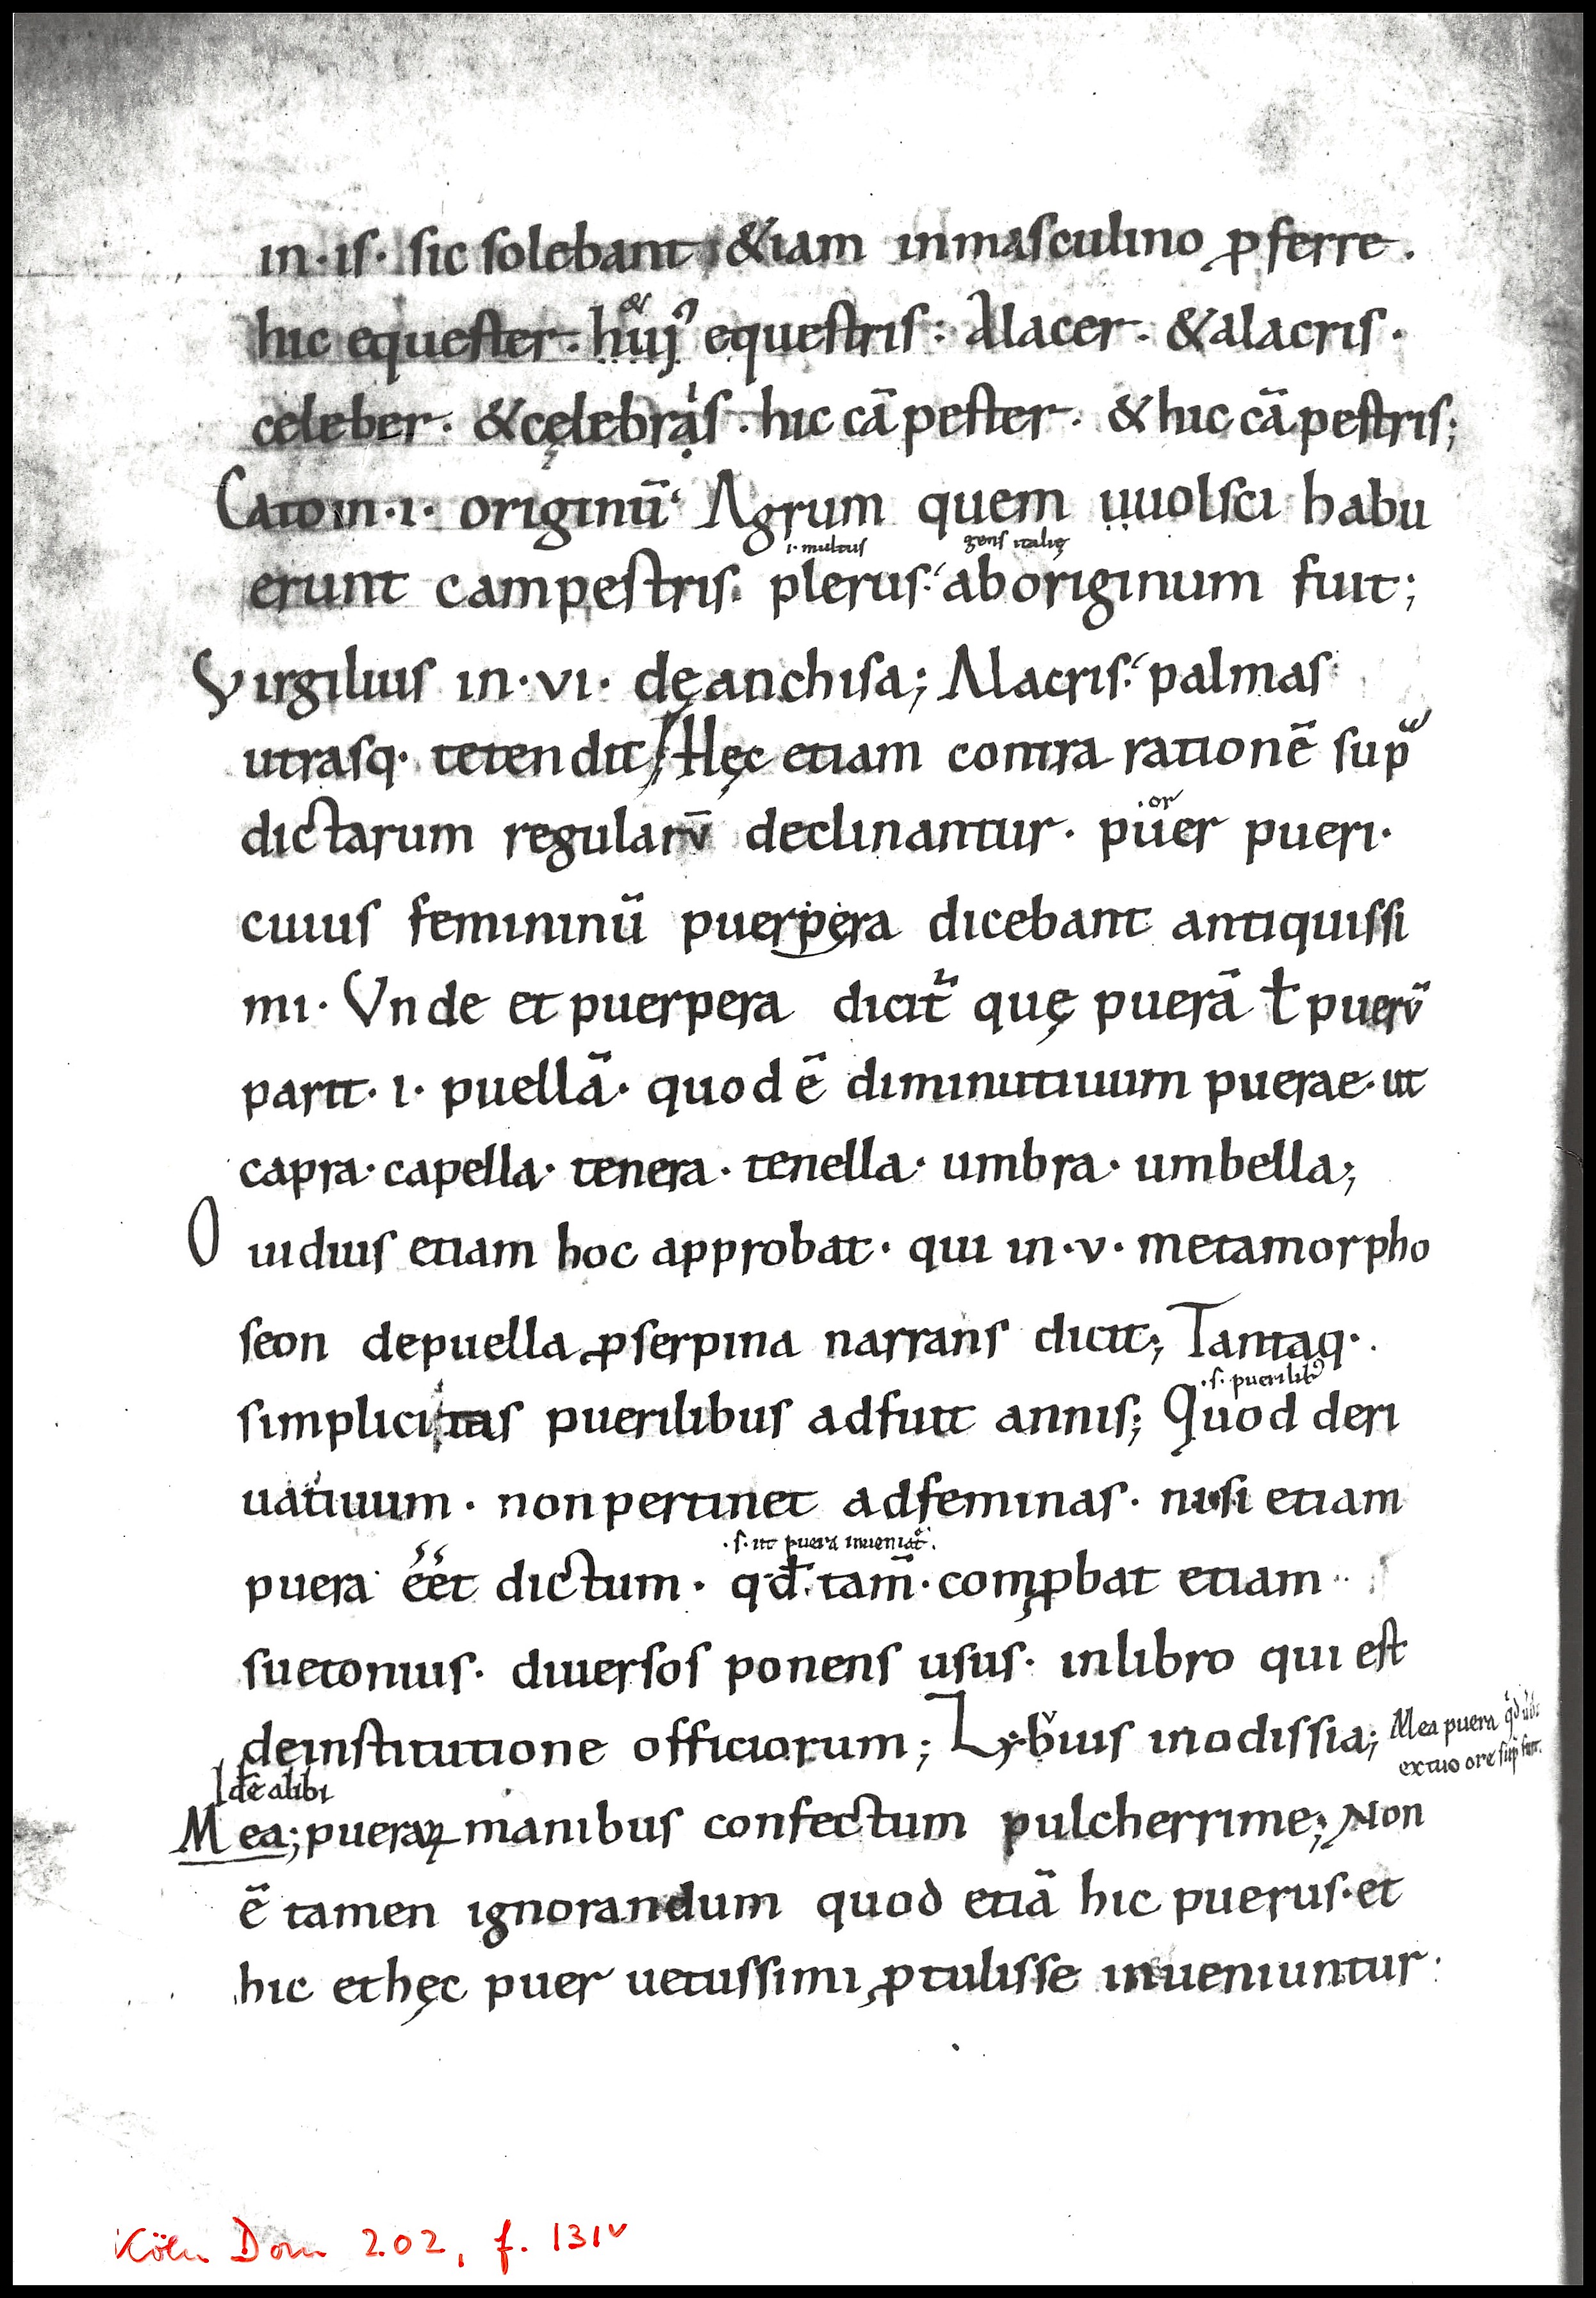 in·is· sic solebant &iam inmasculino ꝓferre.
&
hic equester· huiꝰ equestris: Alacer· &alacris·
i
celeber· &cęlebras· hic cāpester· & hic cāpestris;
Cato in·i· originū· Agrum quem uuolsci habu
i·multus gens italię
erunt campestris· plerus· aboriginum fuit;
Virgilius in·vi· dęanchisa; Alacris· palmas
utrasq· tetendit; Hęc etiam contra rationē sup
dictarum regularū declinantur· puer pueri·
·or
cuius femininū puerpera dicebant antiquissi
mi· Unde et puerpera dicit᷑ quę puerā ł puerū
parit· i· puellā· quod ē diminutiuum puerae· ut
capra· capella· tenera· tenella· umbra· umbella;
Ouidius etiam hoc approbat· qui in·v· metamorpho
seon depuella ꝓserpina narrans dicit; Tantaq·
·s· puerilib
simplicitas puerilibus adfuit annis; Quod deri
uatiuum· nonpertinet adfeminas· nisi etiam
·s· ut puera inueniat᷑·
puera éét dictum· qđ· tam̄· comꝓbat etiam
suetonius· diuersos ponens usus· inlibro qui est
deinstitutione officiorum; Lybius inodissia; Mea puera
extuo ore
Idē alibi
Mea; pueraꝝ manibus confectum pulcherrime; Non
ē tamen ignorandum quod etiā hic puerus· et
hic ethęc puer uetussimi ꝓtulisse inueniuntur·
Köln Dom 202, f. 131v